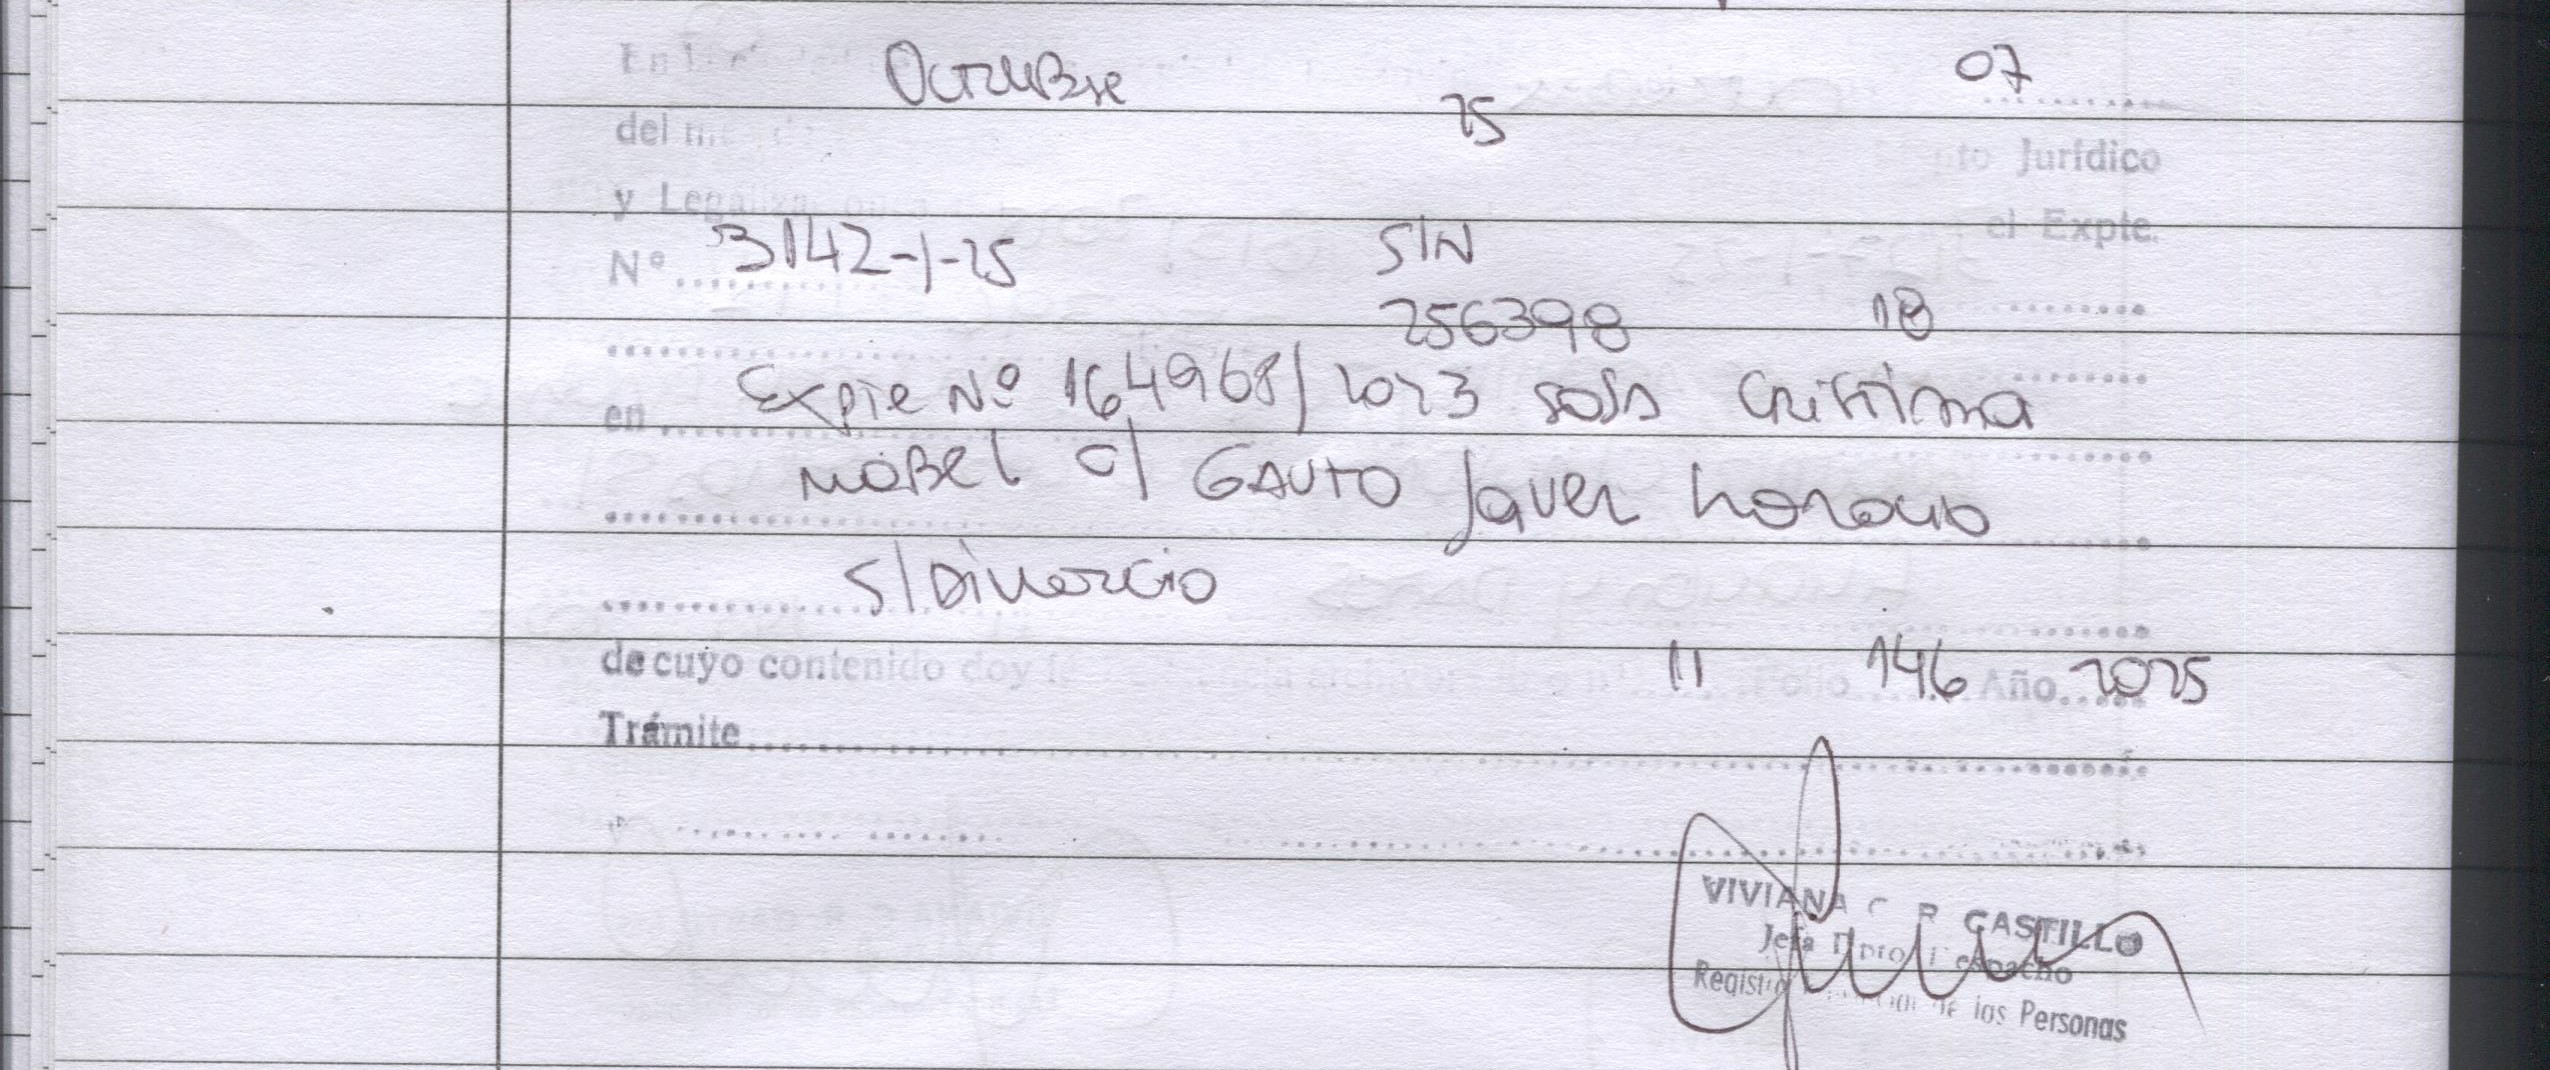 Octubre 07
del m 25 Jurídico
y Legaliza el Expte.
Nº 3142-1-25 S/N
256398 18
Expte Nº 164968/2023 Solis Cristina
en
Mabel c/ GAUTO Javier Horacio
S/Divorcio
de cuyo contenido doy 11 Folio 146 Año 2025
Trámite
VIVIANA C. R. CASTILLO
Jefa Dpto. Despacho
Registro de las Personas